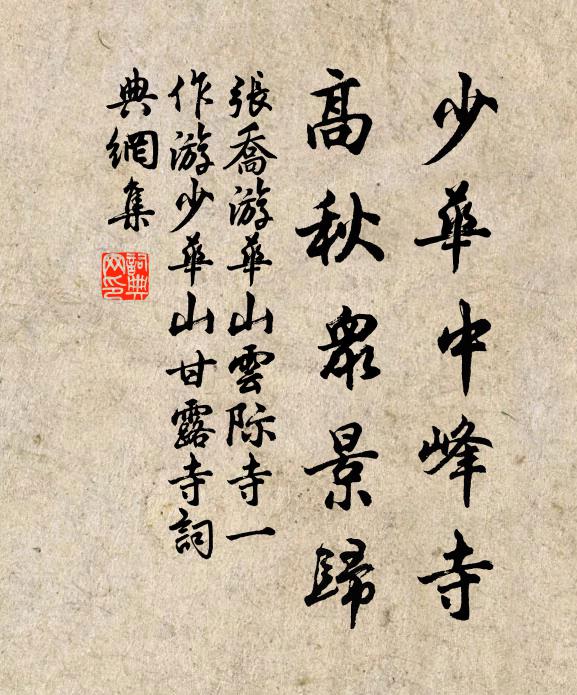 少華中峰寺
高秋眾景歸
張喬游華山雲际寺一
作游少華山甘露寺詞
典網集
詞典網印